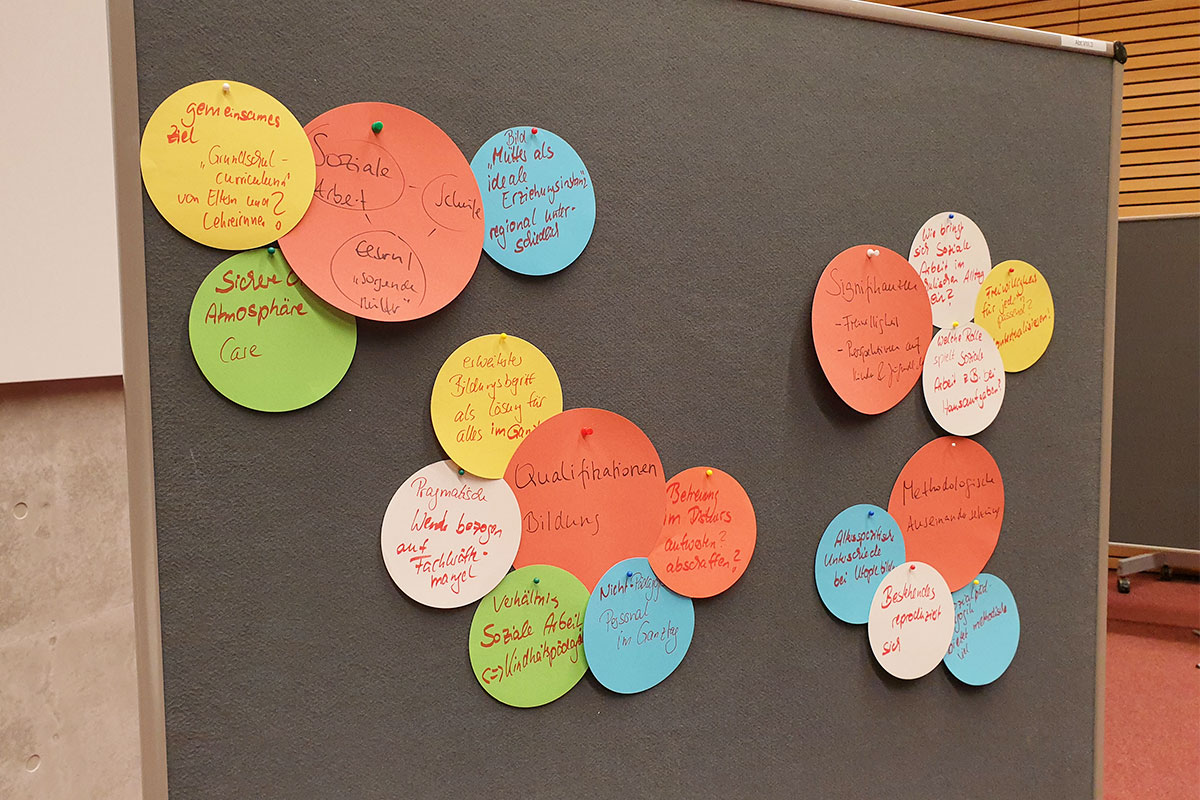 gemeinsames
Ziel
„Grundschul-
curriculum"
von Eltern und
Lehrerinnen?
Soziale
Arbeit
Schule
Eltern/
„sorgende
Mütter"
Bild
„Mutter als
ideale
Erziehungsinstanz"
regional unter-
schiedlich
Sichere
Atmosphäre
Care
erweiterter
Bildungsbegriff
als Lösung für
alles im Ganzt
Qualifikationen
Bildung
Pragmatische
Wende bezogen
auf Fachkräfte-
mangel
Betreuung
im Diskurs
aufwerten?
abschaffen?
Verhältnis
Soziale Arbeit
<=> Kindheitspädagog
Nicht-Pädagog
Personal
im Ganztag
Signifikanten
- Freiwilligkeit
- Perspektiven auf
Kinder & Jugendl.
Wie bringt
sich Soziale
Arbeit im
schulischen Alltag
ein?
Freiwilligkeit
für jede(n)
passend?
Welche Rolle
spielt Soziale
Arbeit z.B. bei
Hausaufgaben?
Methodologische
Auseinandersetzung
Altersspezifische
Unterschiede
bei Utopiebild
Bestehendes
reproduziert
sich
methodische